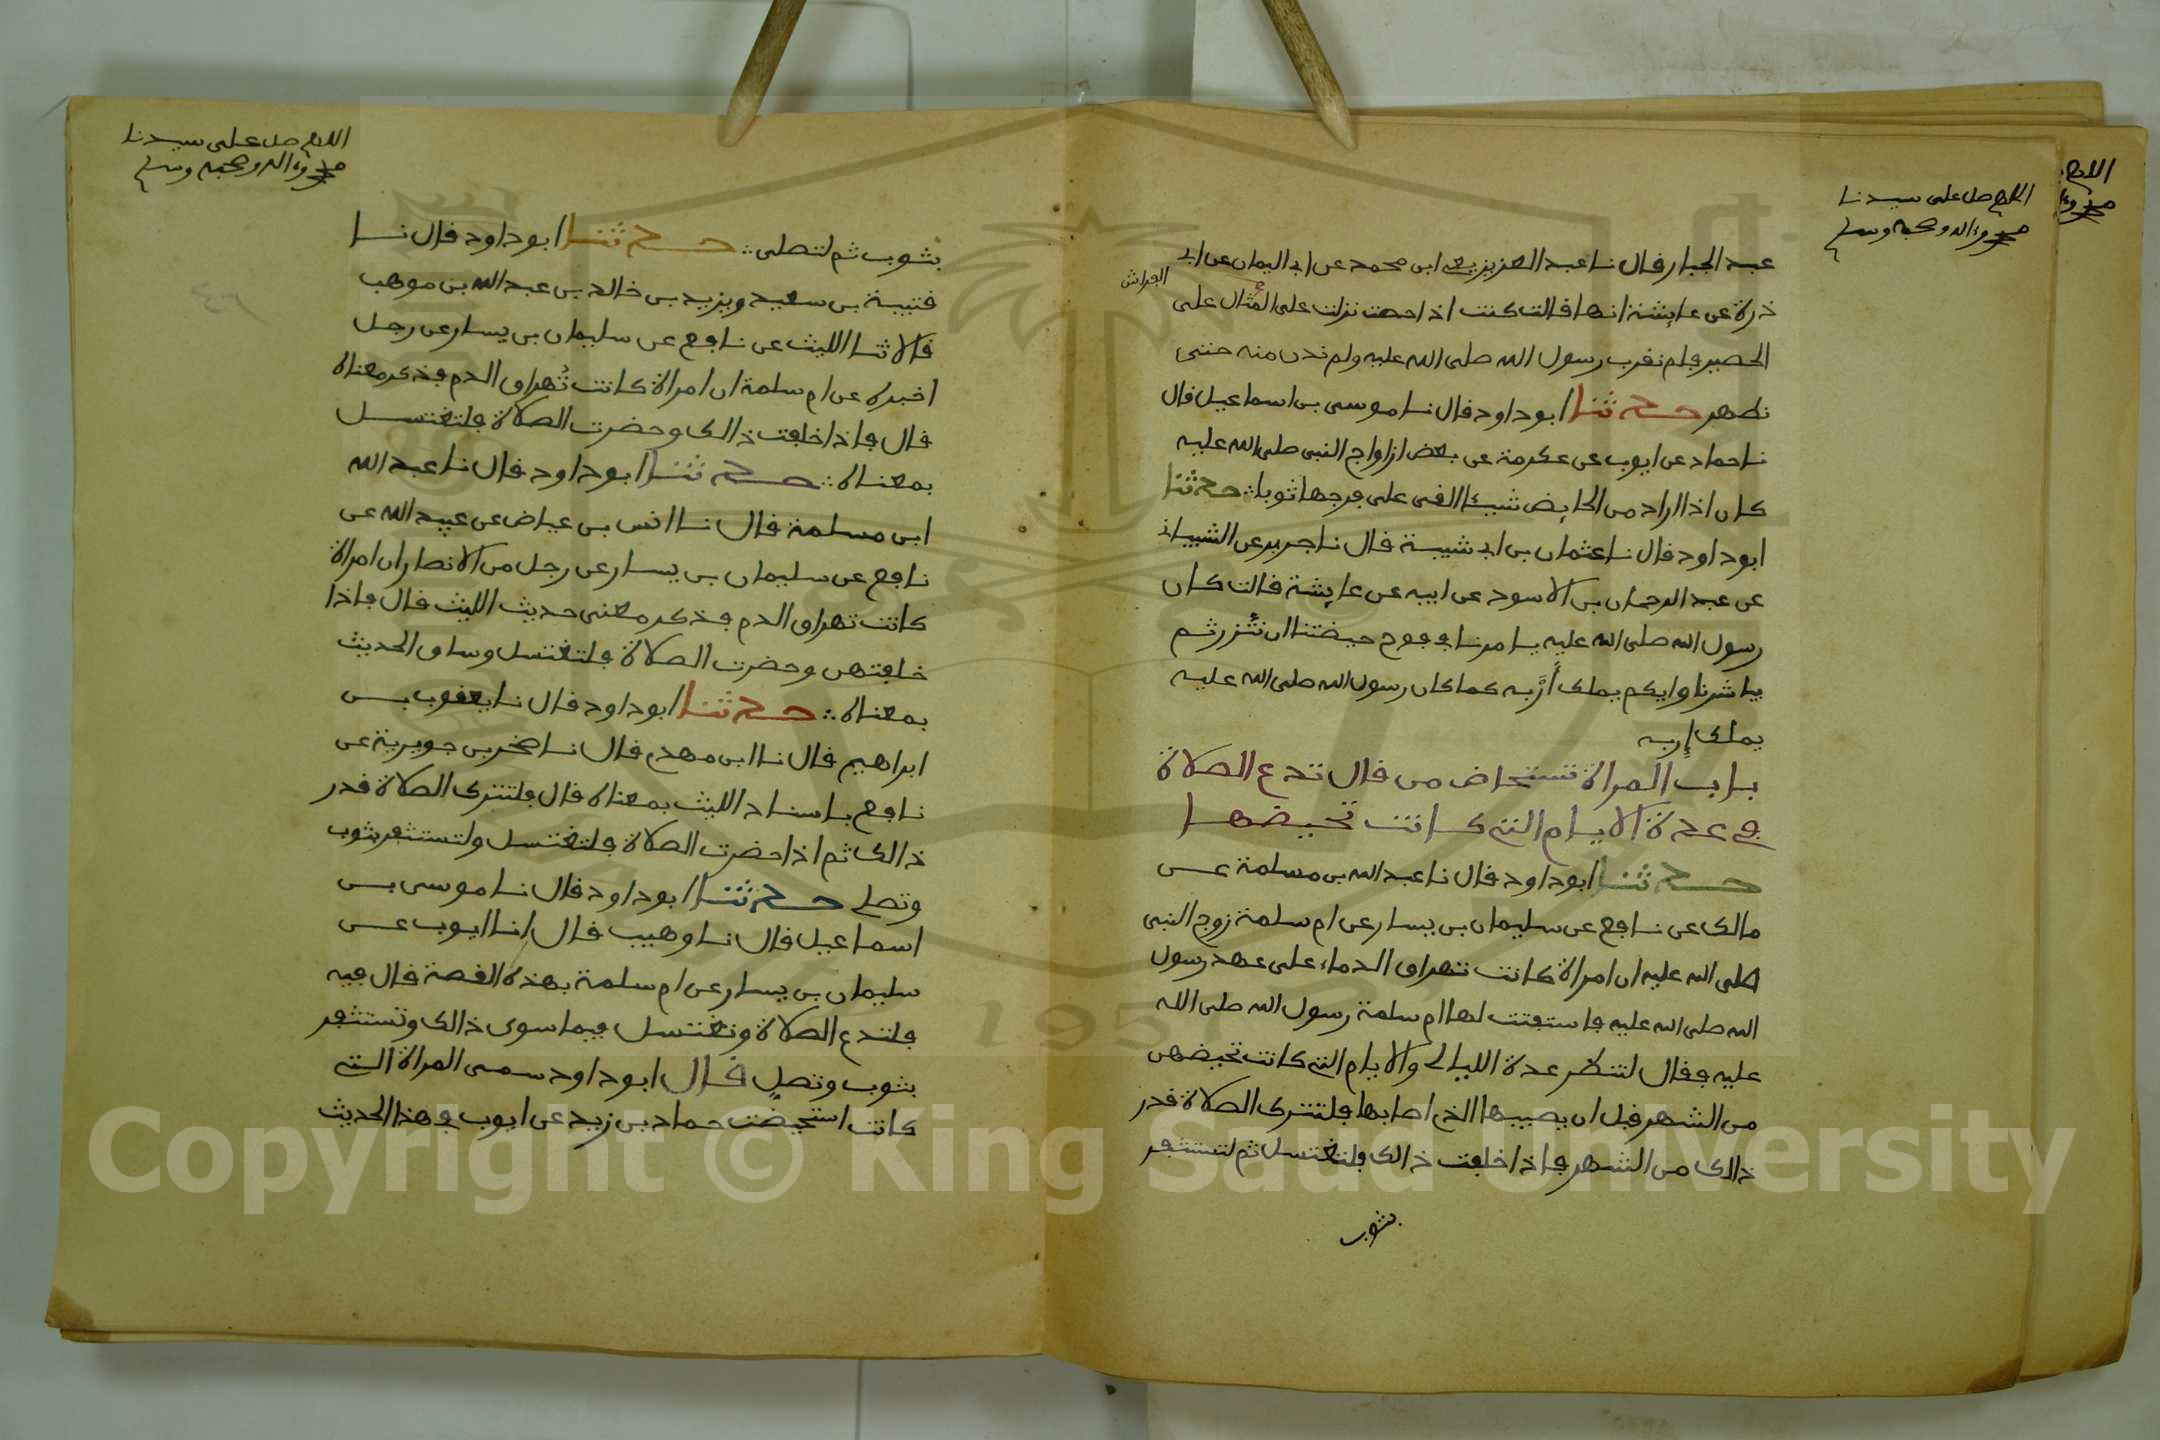 اللهم صل على سيدنا
محمد وءاله وصحبه وسلم
عبد الجبار قال نا عبد العزيز يعني ابن محمد عن ابي اليمان عن ابي
ذرة عن عايشة انها قالت كنت اذا حضت نزلت على المثال على
الفراش
الحصير فلم نقرب رسول الله صلى الله عليه ولم ندن منه حتى
نطهر حدثنا ابو داود قال نا موسى بن اسماعيل قال
نا حماد عن ايوب عن عكرمة عن بعض ازواج النبي صلى الله عليه
كان اذا اراد من الحايض شيئا القى على فرجها ثوبا حدثنا
ابو داود قال نا عثمان بن ابي شيبة قال نا جرير عن الشيباني
عن عبد الرحمان بن الاسود عن ابيه عن عايشة قالت كان
رسول الله صلى الله عليه يامرنا في فوح حيضتنا ان نتزر ثم
يباشرنا وايكم يملك أَرَبه كما كان رسول الله صلى الله عليه
يملك إربه
باب المراة تستحاض من قال تدع الصلاة
في عدة الايام التي كانت تحيضها
حدثنا ابو داود قال نا عبد الله بن مسلمة عن
مالك عن نافع عن سليمان بن يسار عن ام سلمة زوج النبي
صلى الله عليه ان امراة كانت تهراق الدماء على عهد رسول
الله صلى الله عليه فاستفتت لها ام سلمة رسول الله صلى الله
عليه فقال لتنظر عدة الليالي والايام التي كانت تحيضهن
من الشهر قبل ان يصيبها الذي اصابها فلتترك الصلاة قدر
ذالك من الشهر فاذا خلفت ذالك فلتغتسل ثم لتستثفر
بثوب
اللهم صل على سيدنا
محمد وءاله وصحبه وسلم
بثوب ثم لتصلى حدثنا ابو داود قال نا
قتيبة بن سعيد ويزيد بن خالد بن عبد الله بن موهب
قالا ثنا الليث عن نافع عن سليمان بن يسار عن رجل
اخبره عن ام سلمة ان امراة كانت تُهراق الدم فذكر معناه
قال فاذا خلفت ذالك وحضرت الصلاة فلتغتسل
بمعناه حدثنا ابو داود قال نا عبد الله
ابن مسلمة قال نا انس بن عياض عن عبيد الله عن
نافع عن سليمان بن يسار عن رجل من الانصار ان امراة
كانت تهراق الدم فذكر معنى حديث الليث قال فاذا
خلفتهن وحضرت الصلاة فلتغتسل وساق الحديث
بمعناه حدثنا ابو داود قال نا يعقوب بن
ابراهيم قال نا ابن مهدي قال نا صخر بن جويرية عن
نافع باسناد الليث بمعناه قال فلتترك الصلاة قدر
ذالك ثم اذا حضرت الصلاة فلتغتسل ولتستثفر بثوب
وتصلي حدثنا ابو داود قال نا موسى بن
اسماعيل قال نا وهيب قال انا ايوب عن
سليمان بن يسار عن ام سلمة بهذه القصة قال فيه
فلتدع الصلاة وتغتسل فيما سوى ذالك وتستثفر
بثوب وتصلي قال ابو داود سمى المراة التي
كانت استحيضت حماد بن زيد عن ايوب في هذا الحديث
1957
Copyright © King Saud University